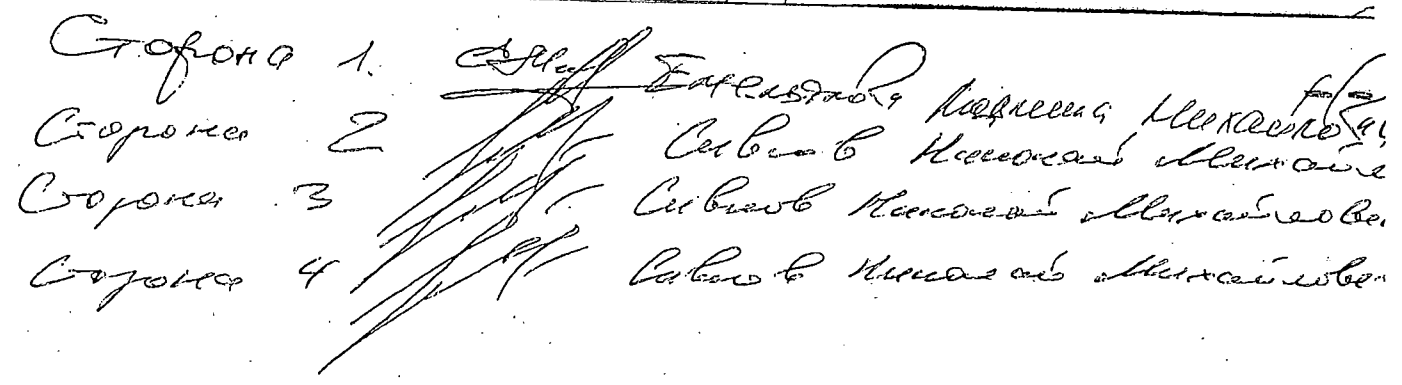 Сторона 1. Емельянова Людмила Михайлов
Сторона 2 Сивков Николай Михайл
Сторона 3 Сивков Николай Михайлови
Сторона 4 Сивков Николай Михайлови